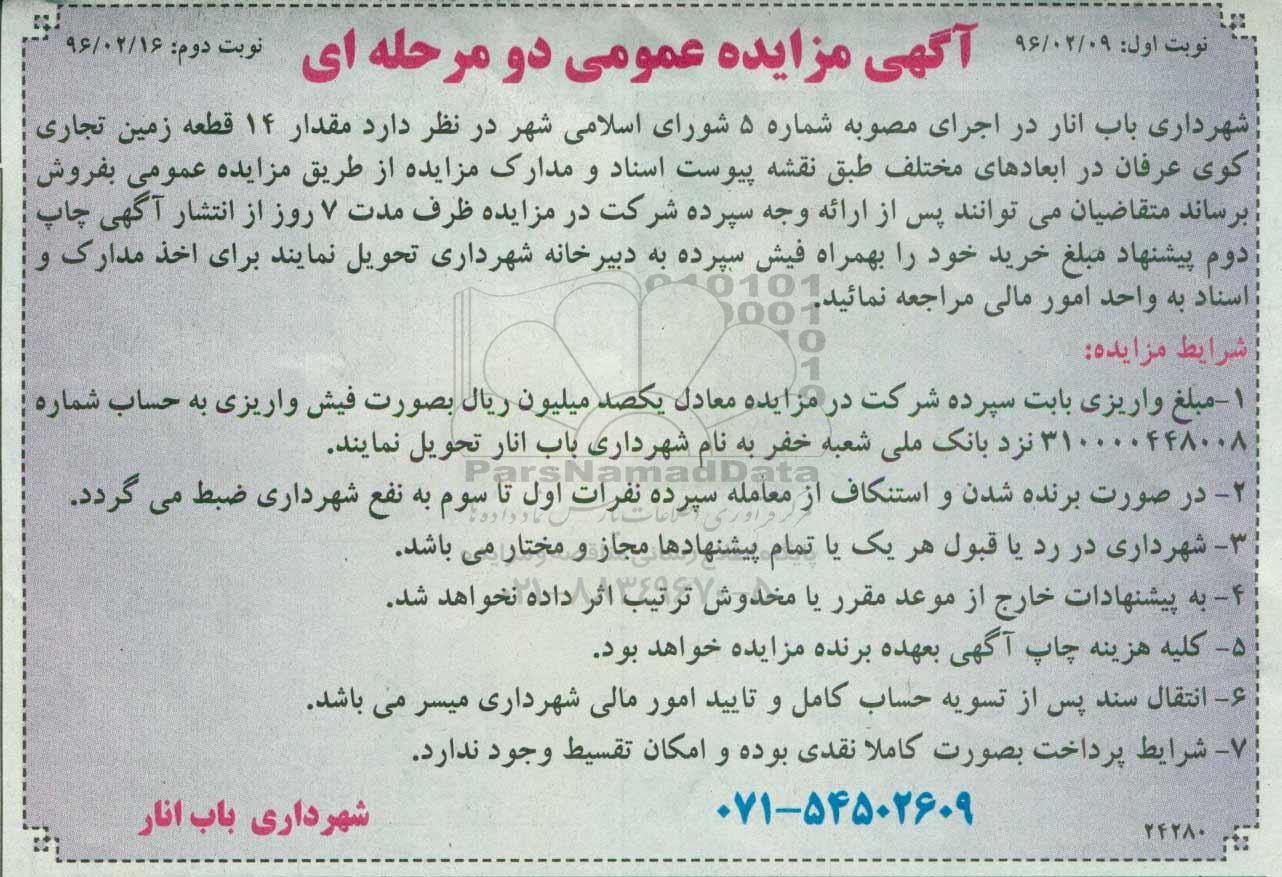 نوبت اول: ۹۶/۰۲/۰۹
آگهی مزایده عمومی دو مرحله ای
نوبت دوم: ۹۶/۰۲/۱۶
شهرداری باب انار در اجرای مصوبه شماره ۵ شورای اسلامی شهر در نظر دارد مقدار ۱۴ قطعه زمین تجاری
کوی عرفان در ابعادهای مختلف طبق نقشه پیوست اسناد و مدارک مزایده از طریق مزایده عمومی بفروش
برساند متقاضیان می توانند پس از ارائه وجه سپرده شرکت در مزایده ظرف مدت ۷ روز از انتشار آگهی چاپ
دوم پیشنهاد مبلغ خرید خود را بهمراه فیش سپرده به دبیرخانه شهرداری تحویل نمایند برای اخذ مدارک و
اسناد به واحد امور مالی مراجعه نمائید.
شرایط مزایده:
۱-مبلغ واریزی بابت سپرده شرکت در مزایده معادل یکصد میلیون ریال بصورت فیش واریزی به حساب شماره
۳۱۰۰۰۰۴۴۸۰۰۸ نزد بانک ملی شعبه خفر به نام شهرداری باب انار تحویل نمایند.
ParsNamadData
۲- در صورت برنده شدن و استنکاف از معامله سپرده نفرات اول تا سوم به نفع شهرداری ضبط می گردد.
۳- شهرداری در رد یا قبول هر یک یا تمام پیشنهادها مجاز و مختار می باشد.
۴- به پیشنهادات خارج از موعد مقرر یا مخدوش ترتیب اثر داده نخواهد شد.
۵- کلیه هزینه چاپ آگهی بعهده برنده مزایده خواهد بود.
۶- انتقال سند پس از تسویه حساب کامل و تایید امور مالی شهرداری میسر می باشد.
۷- شرایط پرداخت بصورت کاملا نقدی بوده و امکان تقسیط وجود ندارد.
۲۴۲۸۰
۰۷۱-۵۴۵۰۲۶۰۹
شهرداری باب انار